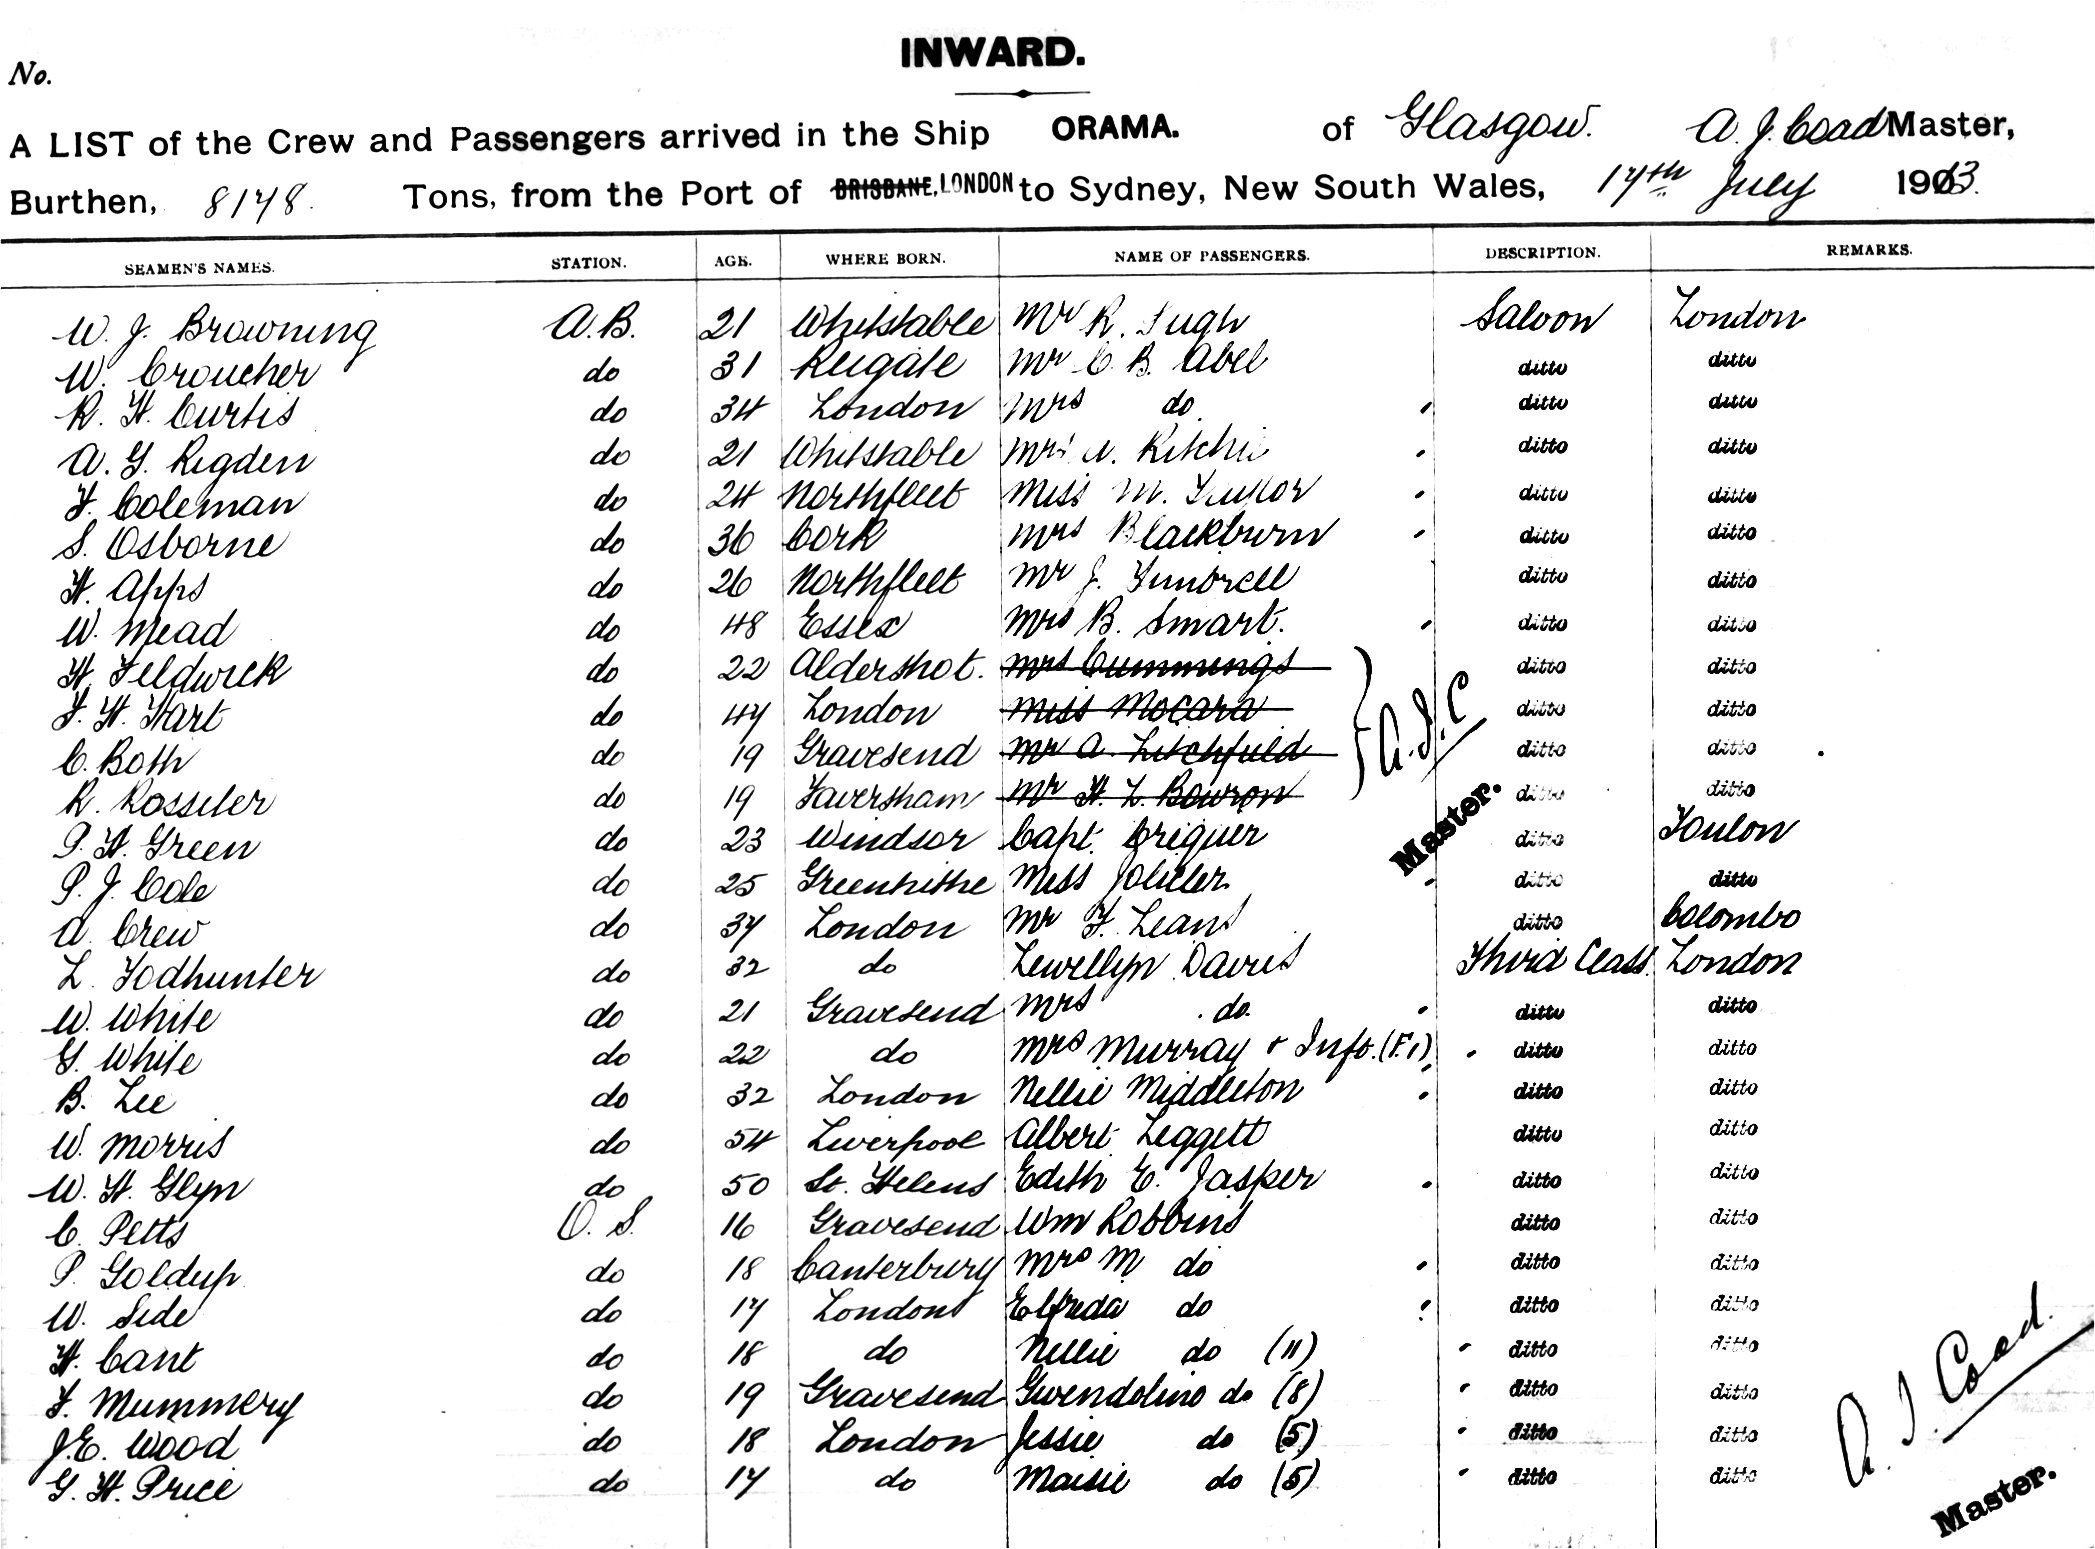 INWARD.
No.
A LIST of the Crew and Passengers arrived in the Ship ORAMA. of Glasgow. A. J. Coad Master,
Burthen, 8178. Tons, from the Port of BRISBANE, LONDON to Sydney, New South Wales, 17th July 1913.
SEAMEN'S NAMES. STATION. AGE. WHERE BORN. NAME OF PASSENGERS. DESCRIPTION. REMARKS.
W. J. Browning A.B. 21 Whitstable Mr R. Pugh Saloon London
W. Croucher do 31 Reigate Mr C. B. Abel ditto ditto
R. H. Curtis do 34 London Mrs do ditto ditto
A. G. Rigden do 21 Whitstable Mrs A. Ritchie ditto ditto
F. Coleman do 24 Northfleet Miss M. Taylor ditto ditto
S. Osborne do 36 Cork Mrs Blackburn ditto ditto
H. Apps do 26 Northfleet Mr J. Fumbrell ditto ditto
W. Mead do 48 Essex Mrs B. Smart. ditto ditto
H. Feldwick do 22 Aldershot. Mrs Cummings ditto ditto
F. H. Hart do 47 London Miss Mocara ditto ditto
C. Both do 19 Gravesend Mr A. Litchfield A.J.C ditto ditto
R. Rosseter do 19 Faversham Mr H. L. Bowron Master. ditto ditto
P. H. Green do 23 Windsor Capt. Criquer ditto Toulon
P. J. Cole do 25 Greenhithe Miss ditto ditto
A. Crew do 37 London Mr F. Leans ditto Colombo
L. Todhunter do 32 do Lewellyn Davies Third Class. London
W. White do 21 Gravesend Mrs do. ditto ditto
G. White do 22 do Mrs Murray & Inft. (F.1) ditto ditto
B. Lee do 32 London Nellie Middleton ditto ditto
W. Morris do 54 Liverpool Albert Leggett ditto ditto
W. H. Glyn do 50 St. Helens Edith E. Jasper ditto ditto
C. Petts O. S. 16 Gravesend Wm Robbins ditto ditto
P. Goldup do 18 Canterbury Mrs M do ditto ditto
W. Side do 17 London Elfreda do ditto ditto
H. Cant do 18 do Nellie do (11) ditto ditto
F. Mummery do 19 Gravesend Gwendoline do (8) ditto ditto
J.E. Wood do 18 London Jessie do (5) ditto ditto
G. H. Price do 17 do Maisie do (5) ditto ditto
A. J. Coad.
Master.